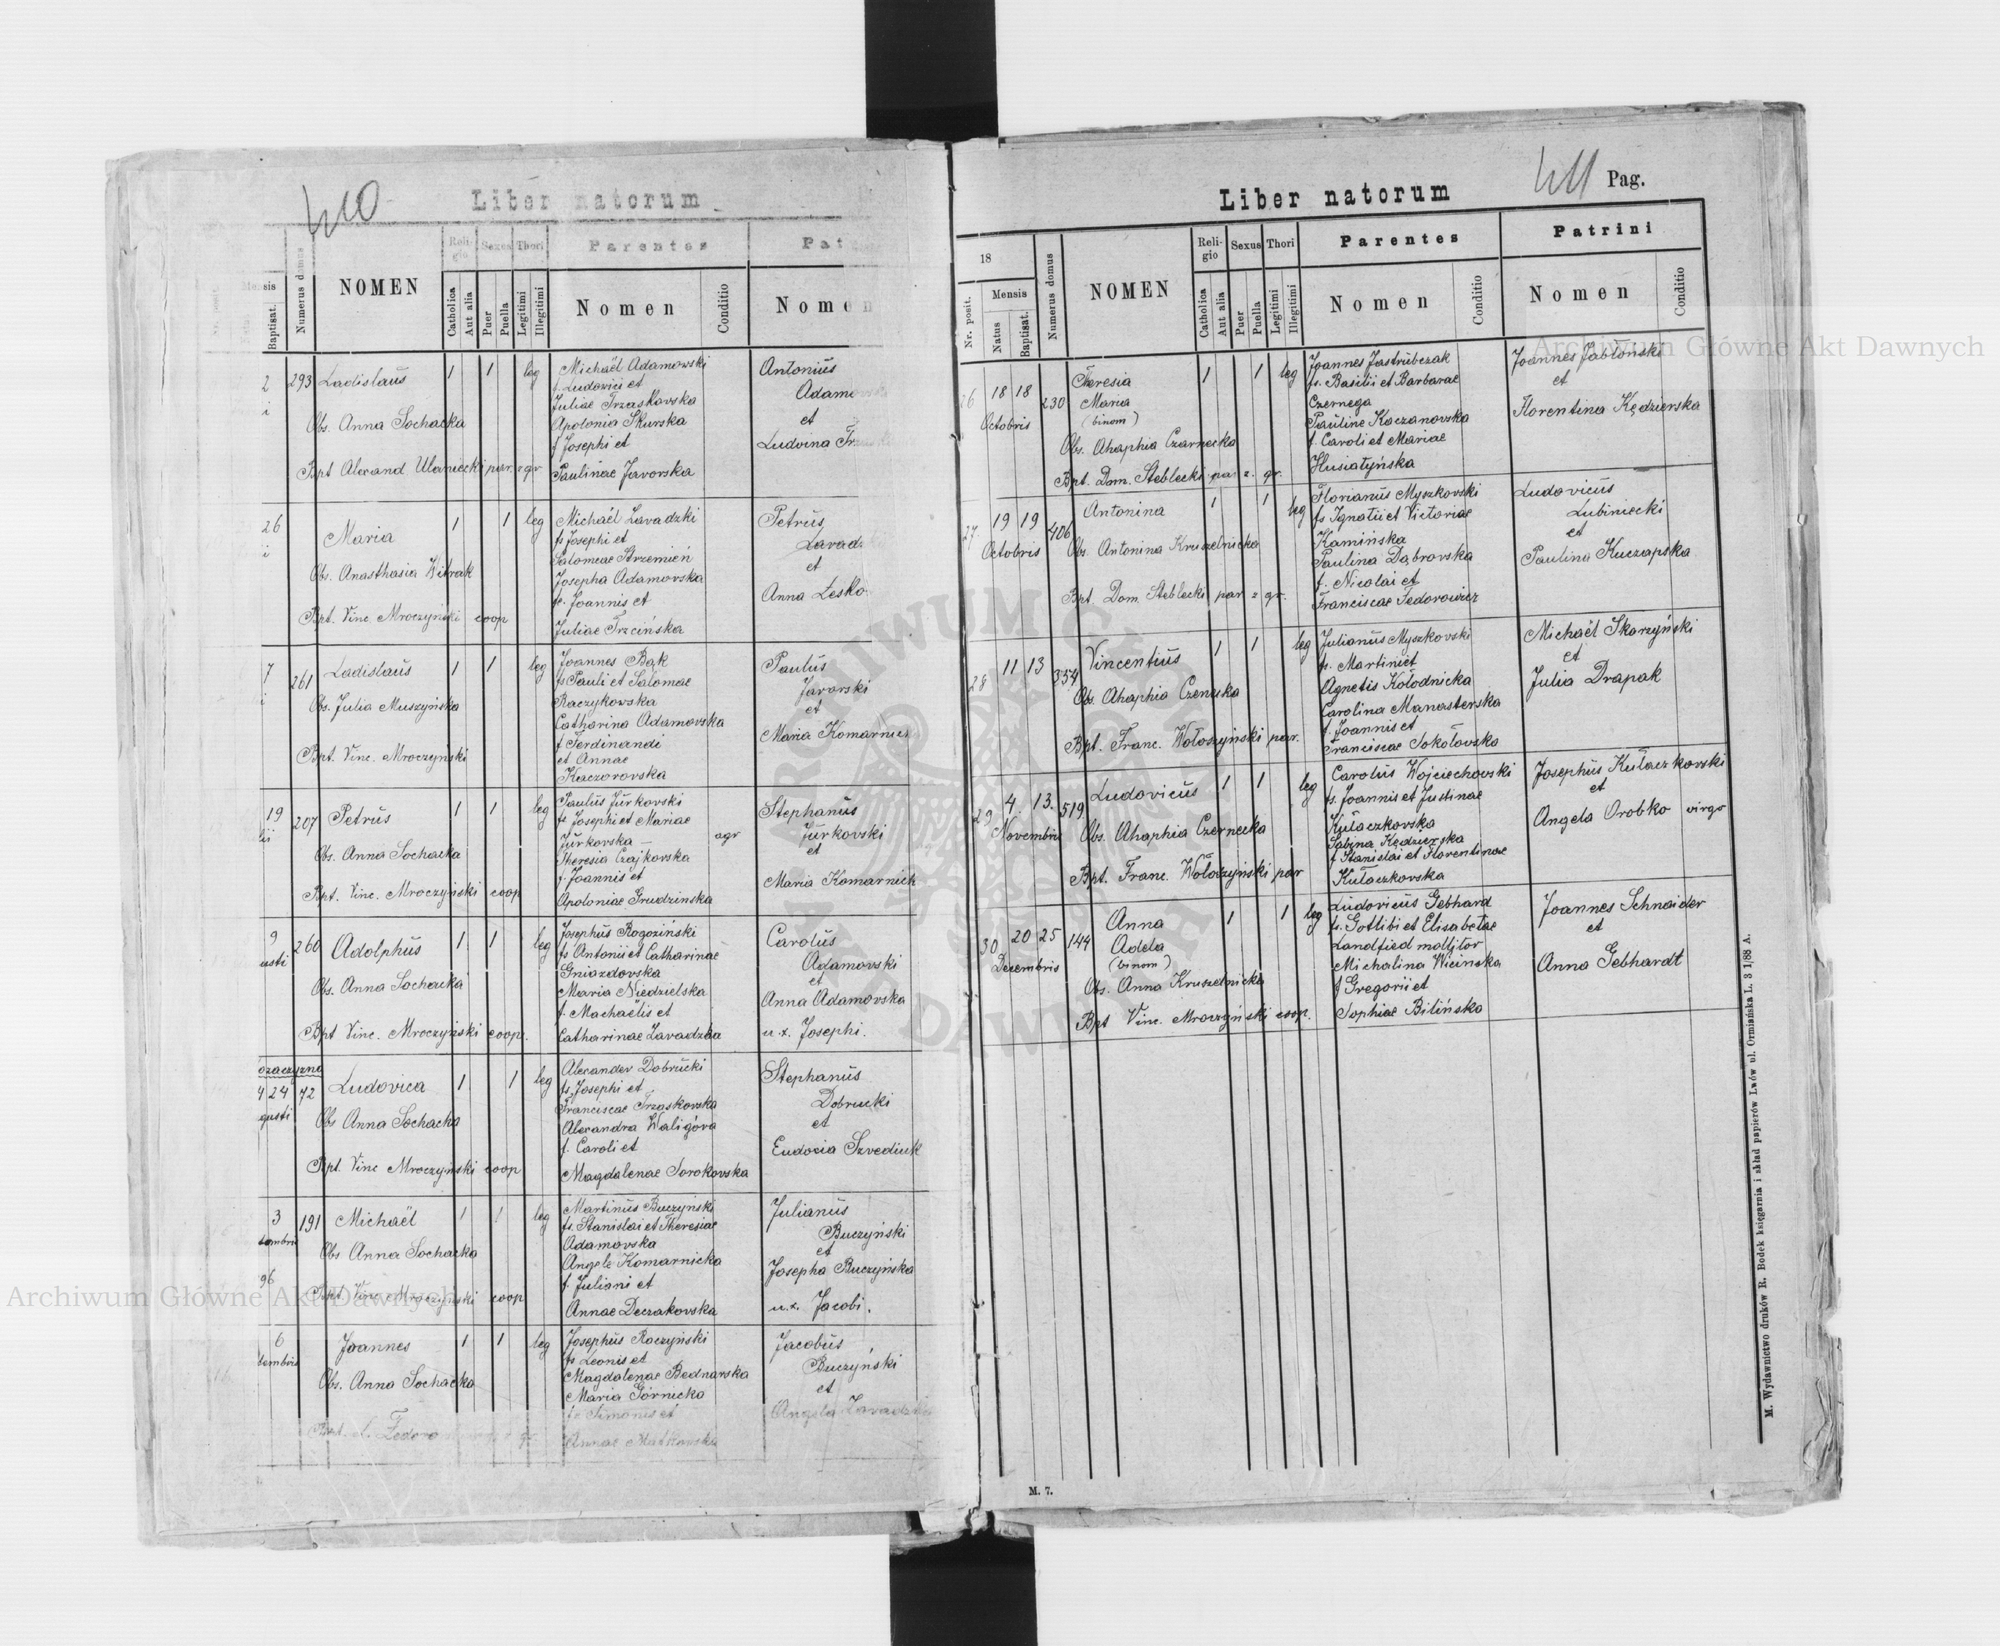 410
Liber natorum
Mensis
Baptisat.
Numerus domus
NOMEN
Reli-
gio
Sexus
Thori
Catholica
Aut alia
Puer
Puella
Legitimi
Illegitimi
Parentes
Nomen
Conditio
Pat
Nomen
2
293 Ladislaus 1 1 leg
Obs. Anna Sochacka
Bpt Alexand Ulaniecki par. r gr
Michaël Adamowski
f. Ludovici et
Juliae Trzaskovska
Apolonia Skurska
f Josephi et
Paulinae Javorska
Antonius
Adamo
et
Ludvina Trz
26
Maria 1 1 leg
Obs. Anasthasia Witrak
Bpt. Vinc Mroczyński coop
Michaël Zavadzki
fs Josephi et
Salomeae Strzemień
Josepha Adamovska
fs. Joannis et
Juliae Trzcińska
Petrus
Zavad
et
Anna Lesko
7
261 Ladislaus 1 1 leg
Obs. Julia Muszyńska
Bpt. Vinc. Mroczyński
Joannes Bąk
fs Pauli et Salomae
Raczykowska
Catharina Adamovska
f Ferdinandi
et Annae
Kaczorovska
Paulus
Javorski
et
Maria Komarnick
19
lii
207 Petrus 1 1 leg
Obs. Anna Sochacka
Bpt. Vinc. Mroczyński coop
Paulus Jurkovski
fs Josephi et Mariae
Jurkovska agr
Theresia Czajkovska
f. Joannis et
Apoloniae Grudzinska
Stephanus
Jurkovski
et
Maria Komarnick
9
usti
260 Adolphus 1 1 leg
Obs. Anna Sochacki
Bpt Vinc. Mroczyński coop.
Josephus Rogoziński
fs Antonii et Catharinae
Gniazdovska
Maria Niedzielska
f. Machaelis et
Catharinae Zavadzka
Carolus
Adamovski
et
Anna Adamovska
u. x. Josephi.
ozaczyzna
4 24 72 Ludovica 1 1 leg
gusti
Obs Anna Sochacka
Bpt. Vinc Mroczyński coop
Alexander Dobrucki
fs Josephi et
Franciscae Trzaskovska
Alexandra Waligóra
f. Caroli et
Magdalenae Sorokovska
Stephanus
Dobrucki
et
Eudoxia Szvediuk
3 191 Michaël 1 1 leg
tembris
Obs Anna Sochacka
96
Bpt Vinc Mroczyński coop
Martinus Buczyński
fs. Stanislai et Theresiae
Adamovska
Angele Komarnicka
f. Juliani et
Annae Deczakovska
Julianus
Buczyński
et
Josepha Buczyńska
u. x. Jacobi.
6
tembris
Joannes 1 1 leg
Obs. Anna Sochacka
Josephus Raczyński
fs Leonis et
Magdalenae Bednarska
Maria Górnicka
fs Simonis et
Annae Matkovska
Jacobus
Buczyński
et
Angela Zavadzka
411 Pag.
Liber natorum
18
Nr. posit.
Mensis
Natus
Baptisat.
Numerus domus
NOMEN
Reli-
gio
Sexus
Thori
Catholica
Aut alia
Puer
Puella
Legitimi
Illegitimi
Parentes
Nomen
Conditio
Patrini
Nomen
Conditio
26 18 18 230
Octobris
Theresia 1 1 leg
Maria
(binom)
Obs. Ahaphia Czarnecka
Bpt. Dom. Steblecki par r. gr.
Joannes Jastrubczak
fs. Basilii et Barbarae
Czernega
Pauline Kaczanovska
f. Caroli et Mariae
Husiatyńska
Joannes Jabłoński
et
Florentina Kędzierska
27 19 19 406
Octobris
Antonina 1 1 leg
Obs. Antonina Kruszelnicka
Bpt. Dom Steblecki par r gr.
Florianus Myszkovski
fs Ignatii et Victoriae
Kamińska
Paulina Dąbrovska
f. Nicolai et
Franciscae Fedorowicz
Ludovicus
Lubiniecki
et
Paulina Kuczapska
28 11 13 354 Vincentius 1 1 leg
Obs. Ahaphia Czerneska
Bpt. Franc. Wołoszyński par.
Julianus Myszkovski
fs. Martini et
Agnetis Kołodnicka
Carolina Manasterska
f. Joannis et
Franciscae Sokołovska
Michaël Skarzyński
et
Julia Drapak
29 4 13. 519 Ludovicus 1 1 leg
Novembris
Obs. Ahaphia Czernecka
Bpt. Franc. Wołoszyński par
Carolus Wojciechovski
fs. Joannis et Justinae
Kułaczkovska
Sabina Kędzierska
f Stanislai et Florentinae
Kułaczkovska
Josephus Kułaczkovski
et
Angela Orobko virgo
30 20 25 144
Decembris
Anna 1 1 leg
Adela
(binom)
Obs. Anna Kruszelnicka
Bpt Vinc. Mroczyński coop.
Ludovicus Gebhard
fs. Gotlibi et Elisabetae
Landfied molijtor
Michalina Wicinska
f Gregorii et
Sophiae Bilińska
Joannes Schnaider
et
Anna Gebhardt
M. 7.
M. Wydawnictwo druków R. Bodek księgarnia i skład papierów Lwów ul. Ormiańska L. 3 1/88 A.
Archiwum Główne Akt Dawnych
Archiwum Główne Akt Dawnych
ARCHIWUM GŁÓWNE AKT DAWNYCH